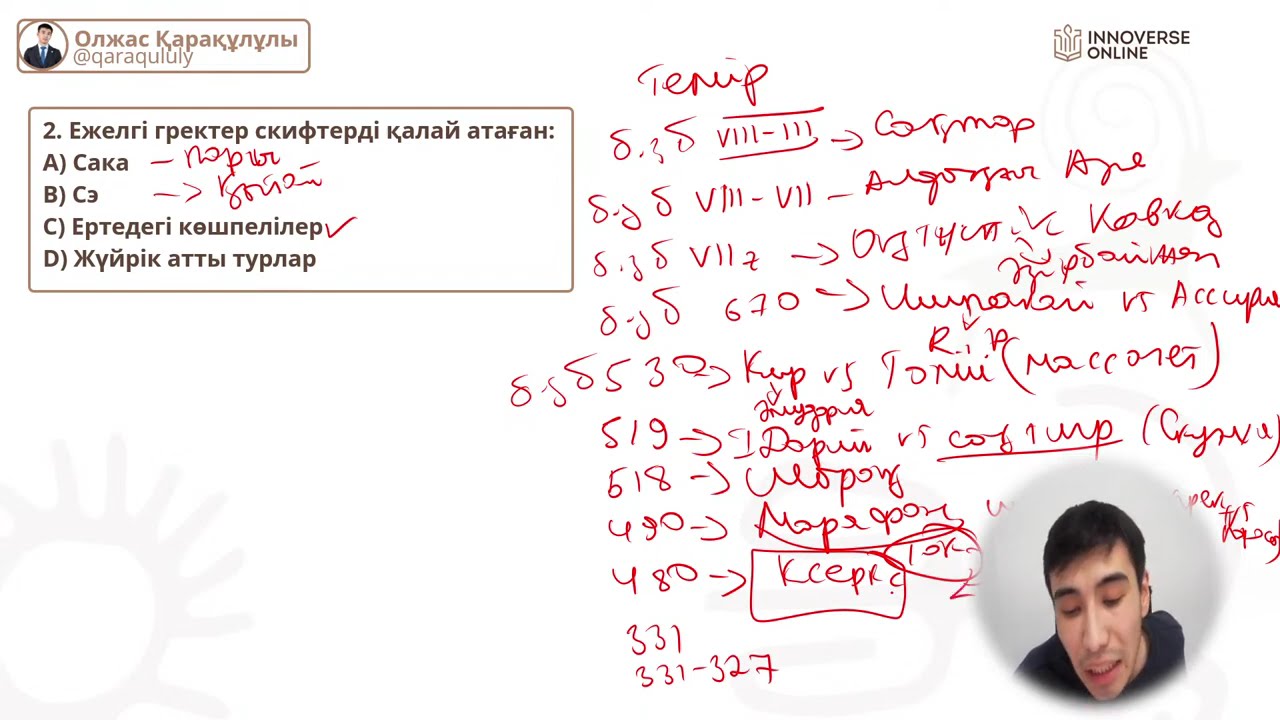 Олжас Қарақұлұлы
@qaraqululy
INNOVERSE
ONLINE
2. Ежелгі гректер скифтерді қалай атаған:
A) Сака – парсы
B) Сэ –> Қытай
C) Ертедегі көшпелілер ✓
D) Жүйрік атты турлар
Темір
б.з.б VIII-III –> Сақтар
б.з.б VIII-VII – Алдыңғы Азия
б.з.б VII ғ –> Оңтүст. Кавказ
Әзірбайжан
б.з.б 670 –> Ишпакай vs Ассирия
б.з.б 530 –> Кир vs Томи (массагет)
519 –> I Дарий vs сақ тигр (Скунха)
518 –> Шырақ
490 –> Марафон
480 –> Ксеркс
331
331-327